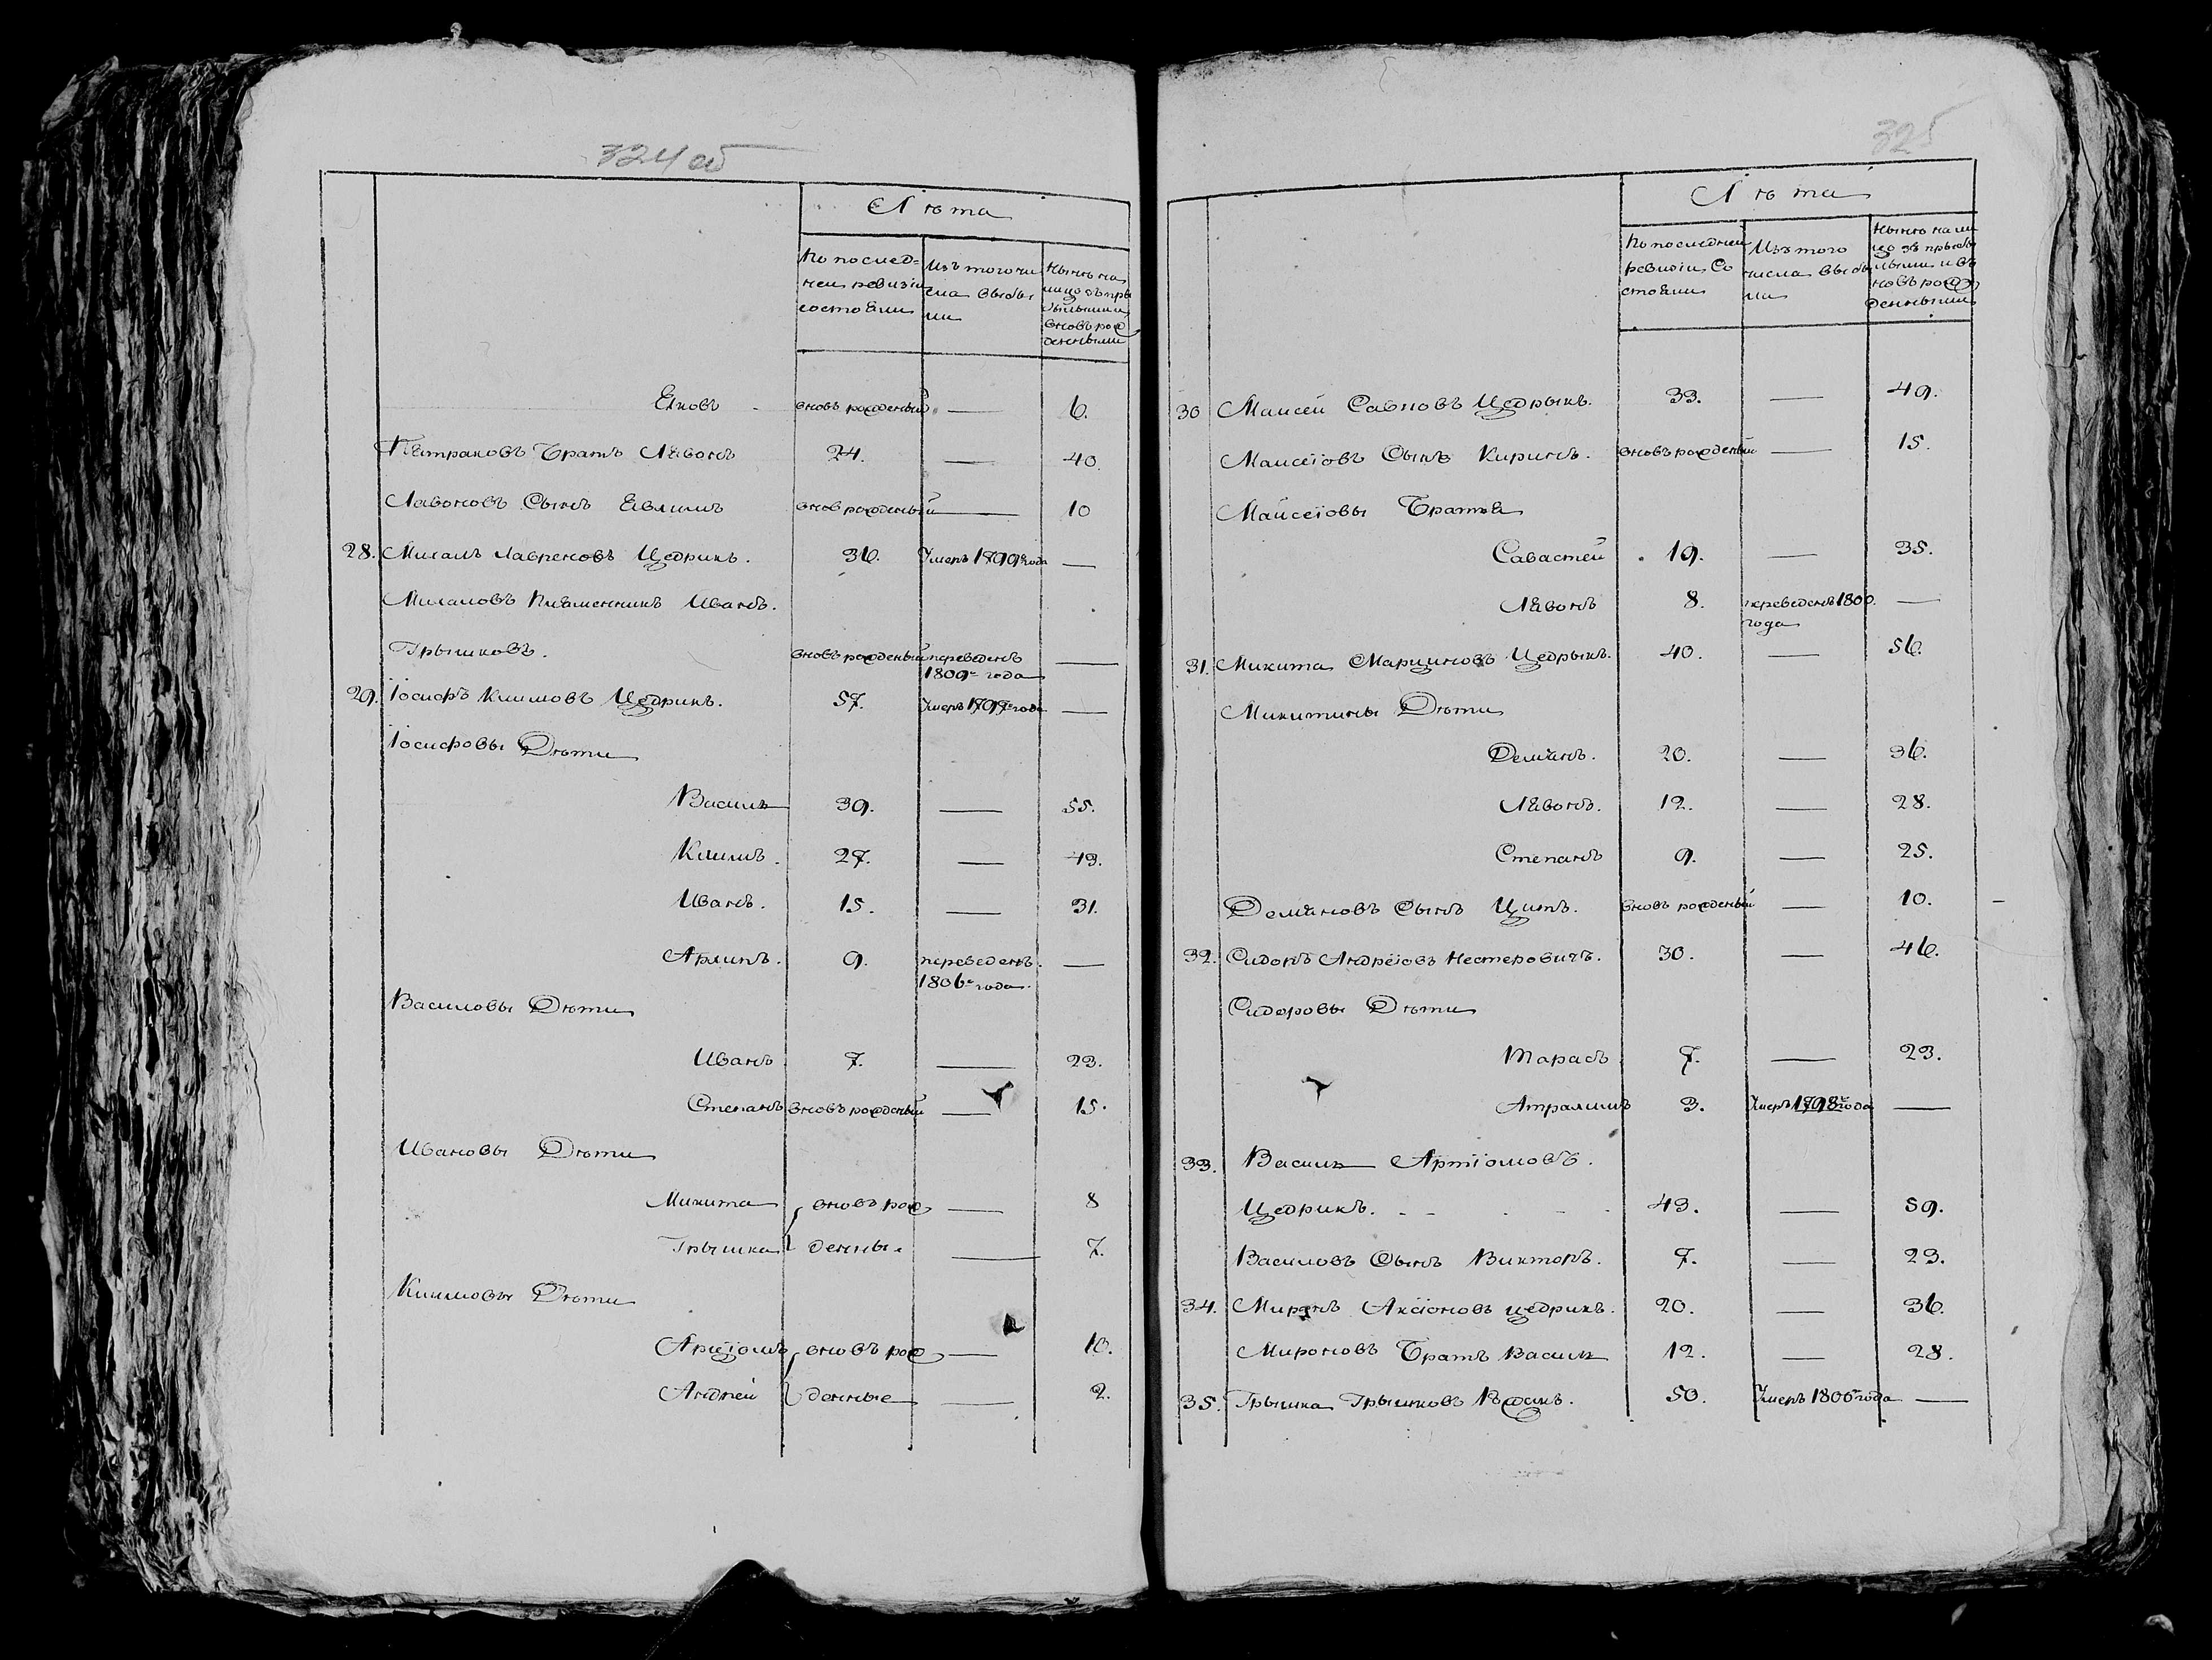 324 об
Лѣта
По послед=
ней ревизіи
состояли
Изъ того чи
сла выбы
ли
Нынѣ на
лицо съ при
былыми и
вновь рож
денными
Яковъ вновь рожденый — 6.
Петраковъ Братъ Лявонъ 24. — 40.
Лавоновъ Сынъ внов рожденый — 10
28. Михалъ Лавреновъ Цедрикъ. 36. Умеръ 1799 года —
Михаловъ Племенникъ Иванъ.
Грышковъ. вновь рожденый переведенъ —
1809 года
29. Іосифъ Климовъ Цедрикъ. 57. Умеръ 1797 года —
Іосифовы Дѣти
Василь 39. — 55.
Климъ. 27. — 43.
Иванъ. 15. — 31.
9. переведенъ. —
1806 года.
Василовы Дѣти
Иванъ 7. — 23.
Степанъ вновь рожденый — 15.
Ивановы Дѣти
Микита вновь рож — 8
Грышка денны. — 7.
Климовы Дѣти
Арціомъ вновь рож — 10.
Андрей денные — 2.
325
Лѣта
По последней
ревизіи Со
стояли
Изъ того
числа выбы
ли
Нынѣ на ли
цо зъ прыбы
лыми и въ
новь рож
денными
30 Маисей Савковъ Цедрыкъ. 33. — 49.
Маисеіовъ Сынъ Кирилъ. вновь рожденый — 15.
Маисеіовы Братья
Савастей 19. — 35.
Лявонъ 8. переведенъ 1800. —
года
31. Микита Марциновъ Цедрыкъ. 40. — 56.
Микитины Дѣти
Демянъ. 20. — 36.
Лявонъ. 12. — 28.
Степанъ 9. — 25.
Демяновъ Сынъ вновь рожденый — 10.
32. Сидоръ Андреіовъ Нестеровичъ. 30. — 46.
Сидоровы Дѣти
Тарасъ 7. — 23.
Атрахимъ 3. Умеръ 1798 года —
33. Василь Артіомовъ.
Цедрикъ. 43. — 59.
Василовъ Сынъ Викторъ. 7. — 23.
34. Миронъ Аксіоновъ цедрикъ. 20. — 36.
Мироновъ Братъ Василь 12. — 28.
35. Грышка Грышковъ 50. Умеръ 1806 года —